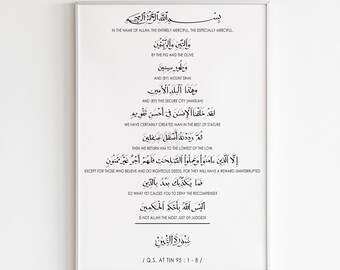 بِسْمِ اللَّهِ الرَّحْمَٰنِ الرَّحِيمِ
IN THE NAME OF ALLAH, THE ENTIRELY MERCIFUL, THE ESPECIALLY MERCIFUL.
وَالتِّينِ وَالزَّيْتُونِ
BY THE FIG AND THE OLIVE
وَطُورِ سِينِينَ
AND (BY) MOUNT SINAI
وَهَٰذَا الْبَلَدِ الْأَمِينِ
AND (BY) THIS SECURE CITY (MAKKAH)
لَقَدْ خَلَقْنَا الْإِنسَانَ فِي أَحْسَنِ تَقْوِيمٍ
WE HAVE CERTAINLY CREATED MAN IN THE BEST OF STATURE
ثُمَّ رَدَدْنَاهُ أَسْفَلَ سَافِلِينَ
THEN WE RETURN HIM TO THE LOWEST OF THE LOW,
إِلَّا الَّذِينَ آمَنُوا وَعَمِلُوا الصَّالِحَاتِ فَلَهُمْ أَجْرٌ غَيْرُ مَمْنُونٍ
EXCEPT FOR THOSE WHO BELIEVE AND DO RIGHTEOUS DEEDS, FOR THEY WILL HAVE A REWARD UNINTERRUPTED.
فَمَا يُكَذِّبُكَ بَعْدُ بِالدِّينِ
SO WHAT YET CAUSES YOU TO DENY THE RECOMPENSE?
أَلَيْسَ اللَّهُ بِأَحْكَمِ الْحَاكِمِينَ
IS NOT ALLAH THE MOST JUST OF JUDGES?
سُورَةُ التِّينِ
/ Q.S. AT TIN 95 : 1 - 8 /